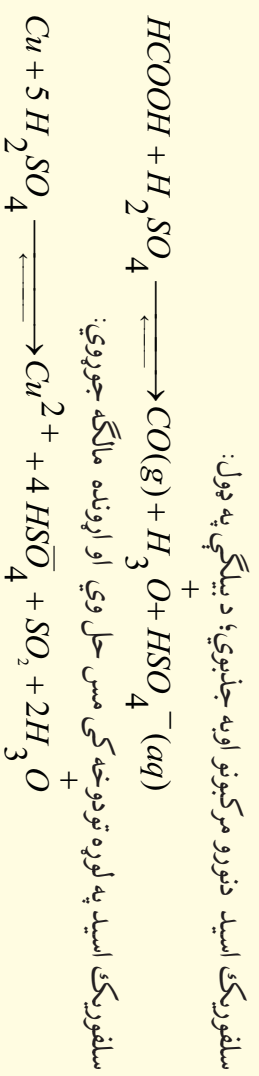 سلفوریک اسید دنورو مرکبونو اوبه جذبوي؛ د بیلگې په ډول:
HCOOH + H₂SO₄ ⇄ CO(g) + H₃O⁺ + HSO₄⁻(aq)
سلفوریک اسید په لوړه تودوخه کې مس حل وي او اړونده مالگه جوړوي:
Cu + 5 H₂SO₄ ⇄ Cu²⁺ + 4 HSO₄⁻ + SO₂ + 2H₃O⁺